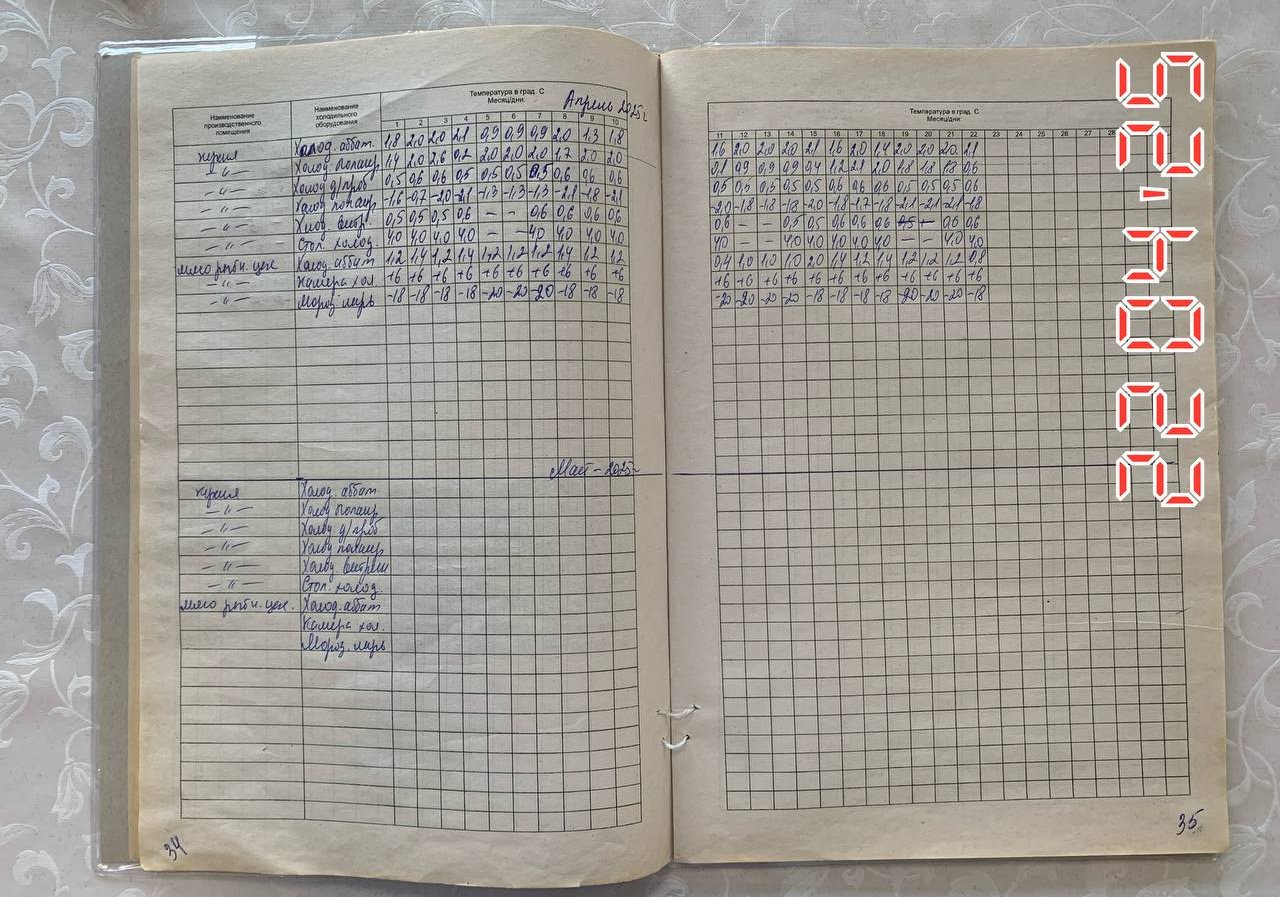 Наименование производственного помещения
Наименование холодильного оборудования
Температура в град. С
Месяц/дни:
Апрель 2025г
1 2 3 4 5 6 7 8 9 10
кухня Холод. аббат. 1,8 2,0 2,0 2,1 0,9 0,9 0,9 2,0 1,3 1,8
–〃– Холод. 1,4 2,0 2,6 0,2 2,0 2,0 2,0 1,7 2,0 2,0
–〃– Холод д/проб 0,5 0,6 0,6 0,5 0,5 0,5 0,5 0,6 0,6 0,6
–〃– Холод -1,6 -0,7 -2,0 -2,1 -1,3 -1,3 -1,3 -2,1 -1,8 -2,1
–〃– Холод 0,5 0,5 0,5 0,6 – – 0,6 0,6 0,6 0,6
–〃– Стол. холод. 4,0 4,0 4,0 4,0 – – 4,0 4,0 4,0 4,0
мясо рыбн. цех Холод. аббат 1,2 1,4 1,2 1,4 1,2 1,2 1,2 1,4 1,2 1,2
–〃– Камера хол +6 +6 +6 +6 +6 +6 +6 +6 +6 +6
–〃– Мороз. ларь -18 -18 -18 -18 -20 -20 -20 -18 -18 -18
Май – 2025г
кухня Холод. аббат
–〃– Холод
–〃– Холод д/проб
–〃– Холод
–〃– Холод. витрин
–〃– Стол. холод.
мясо рыбн. цех. Холод. аббат
Камера хол.
Мороз. ларь
34
Температура в град. С
Месяц/дни:
11 12 13 14 15 16 17 18 19 20 21 22 23 24 25 26 27 28
1,6 2,0 2,0 2,0 2,1 1,6 2,0 1,4 2,0 2,0 2,0 2,1
0,1 0,9 0,9 0,9 0,4 1,2 2,1 2,0 1,8 1,8 1,8 0,6
0,5 0,5 0,5 0,5 0,5 0,6 0,6 0,6 0,5 0,5 0,5 0,6
-2,0 -1,8 -1,8 -1,8 -2,0 -1,8 -1,7 -1,8 -2,1 -2,1 -2,1 -1,8
0,6 – – 0,5 0,5 0,6 0,6 0,6 – 0,6 0,6
4,0 – – 4,0 4,0 4,0 4,0 4,0 – – 4,0 4,0
0,4 1,0 1,0 1,0 2,0 1,4 1,2 1,4 1,2 1,2 1,2 0,8
+6 +6 +6 +6 +6 +6 +6 +6 +6 +6 +6 +6
-20 -20 -20 -20 -18 -18 -18 -18 -20 -20 -20 -18
35
22 04 '25